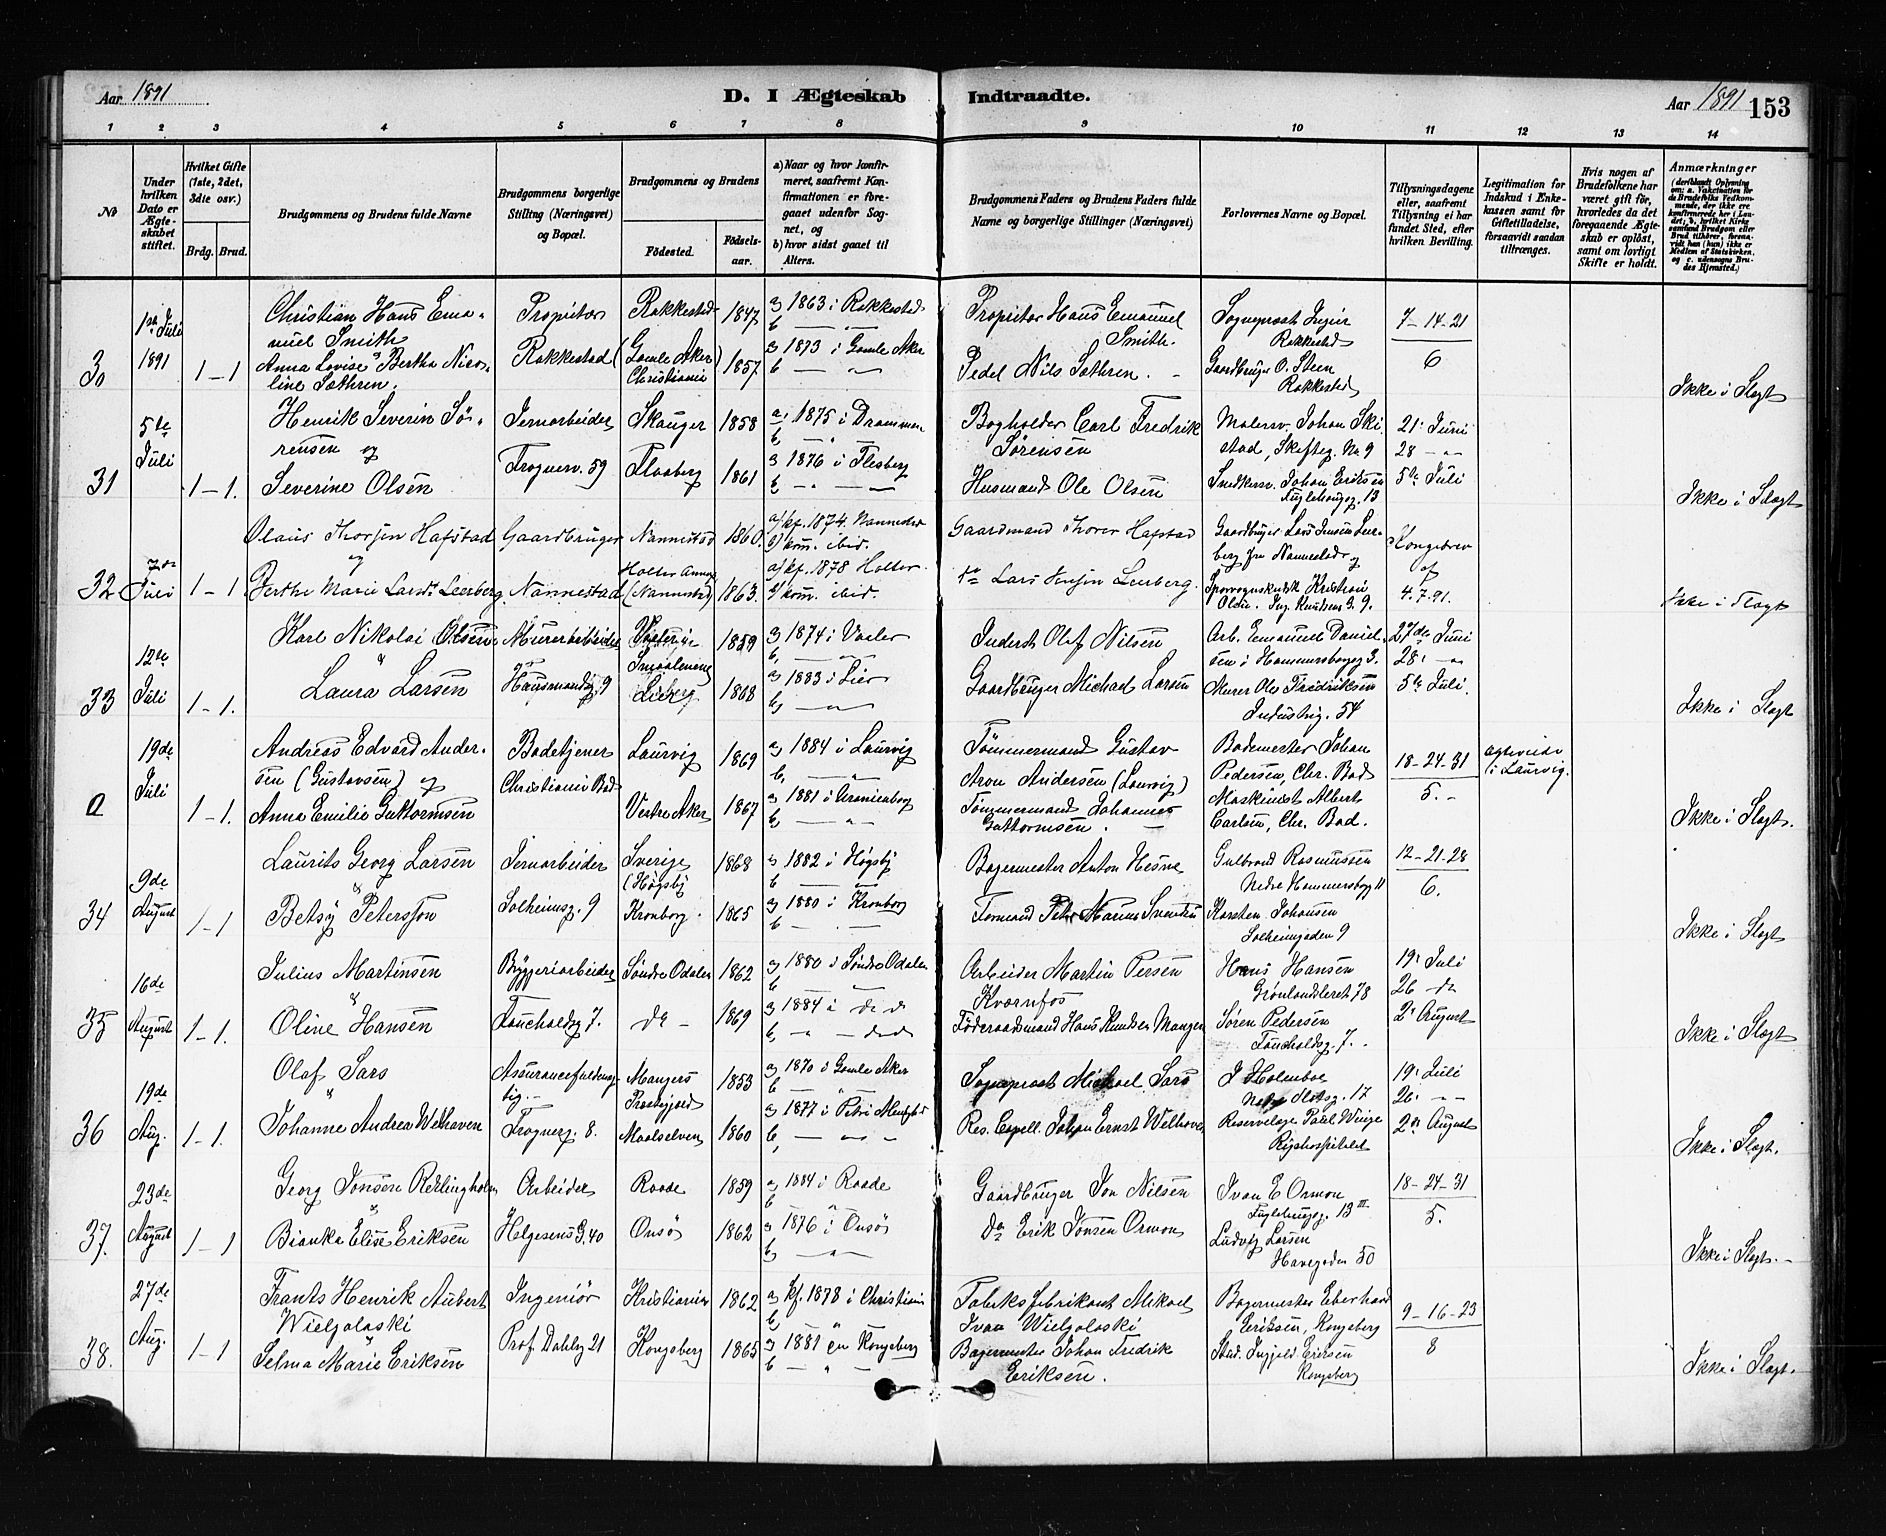 Aar 1891
D. I Ægteskab Indtraadte.
Aar 1891 153
1 2 3 4 5 6 7 8 9 10 11 12 13 14
No
Under hvilken Dato er Ægteskabet stiftet.
Hvilket Gifte (1ste, 2det, 3die osv.)
Brdg. Brud.
Brudgommens og Brudens fulde Navne
Brudgommens borgerlige Stilling (Næringsvei) og Bopæl.
Brudgommens og Brudens
Födested.
Födselsaar.
a) Naar og hvor konfirmeret, saafremt Konfirmationen er foregaaet udenfor Sognet, og
b) hvor sidst gaaet til Alters.
Brudgommens Faders og Brudens Faders fulde Navne og borgerlige Stillinger (Næringsvei)
Forlovernes Navne og Bopæl.
Tillysningsdagene eller, saafremt Tillysning ei har fundet Sted, efter hvilken Bevilling.
Legitimation for Indskud i Enkekassen samt for Giftetilladelse, forsaavidt saadan tiltrænges.
Hvis nogen af Brudefolkene har været gift för, hvorledes da det foregaaende Ægteskab er oplöst, samt om lovligt Skifte er holdt.
Anmærkninger
30
1ste Juli 1891
1 – 1
Christian Hans Emanuel Smith
Anna Lovise Bertha Nicoline Sathren.
Propritær
Rakkestad
Rakkestad
(Gamle Aker) Christiania
1847
1857
a, 1863 i Rakkestad
a 1873 i Gamle Aker
Propritær Hans Emanuel Smith.
Pedel Nils Sathren.
Sogneprest
Rakkestad
Gaardbruger O. Steen
Rakkestad
7 – 14 – 21
6
Ikke i Slægt
31
5te Juli
1 – 1.
Henrik Severin Sörensen og
Severine Olsen
Jernarbeider
Frognerv. 59
Skauger
Flaaberg
1858
1861
a, 1875 i Drammen
a 1876 i Flesberg
Bogholder Carl Fredrik Sørensen
Husmand Ole Olsen
Malersv. Johan Skistad, Skifteg. No 9
Snedkersv. Johan Eriksen
Fuglehaugg. 13
21' Juni
28 – „ –
5te Juli
Ikke i Slægt
32
7de Juli
1 – 1
Olaus Thorsen Hafstad og
Berthe Marie Larsdt Leerberg.
Gaardbruger
Nannestad
Nannestad
Holter Annex (Nannestad)
1860.
1863.
a/ kf. 1874. Nannestad
b) kom. ibid.
a/ kf. 1878 Holter.
b/ kom. ibid.
Gaardmand Thorer Hafstad
do Lars Jensen Leerberg.
Gaardbruger Lars Jensen Leerberg fra Nannestad og
Sporvognskusk Kristian Olsen. Ing. Knudsens G. 9.
Kongebrev af
4.7.91.
Ikke i Slægt
33
12te Juli
1 – 1.
Karl Nikolai Olsen
&
Laura Larsen
Murerarbeider
Hausmansg. 9
Smaalenene
1859
1868
a 1874 i Vaaler
a 1883 i Lier
Inderst Olaf Nilsen
Gaardbruger Michael Larsen
Arb. Emanuel Danielsen i Hammersborgg 3.
Murer Ole Fredriksen
Industrig. 54
27de Juni
28' – „
5te Juli.
Ikke i Slægt
a
19de Juli
1 – 1.
Andreas Edvard Andersen (Gustavsen) og
Anna Emilie Guttormsen
Badetjener
Christiania Bad
Laurvig
Vestre Aker
1869
1867
a, 1884 i Laurvig
a 1881 i Uranienborg
Tömmermand Gustav Aron Andersen (Laurvig)
Tömmermand Johannes Guttormsen.
Bademester Johan Pedersen, Chr. Bad
Maskinist Albert Carlsen, Chr. Bad.
18 – 24 – 31
5. –
i Laurvig.
Ikke i Slægt.
34
9de August
1 – 1
Laurits Georg Larsen
&
Betsy Petersson
Jernarbeider
Solheimsg. 9
Sverige (Högsby
Kronborg.
1868
1865
a 1882 i Högsby
a 1880 i Kronborg
Bagermester Anton Hesne
Formand Peter Marius Svendsen
Gulbrand Rasmussen
Nedre Hammersborgg 11
Karsten Johansen
Solheimgaden 9
12 – 21 – 28
6.
Ikke i Slægt
35
16de August
1 – 1.
Julius Martinsen
&
Oline Hansen
Bryggeriarbeider
Fauchaldsg 7.
Söndre Odalen
do –
1862
1869
a 1880 i Söndre Odalen
a 1884 i do do
Arbeider Martin Persen Kvarnfos
Föderaadsmand Hans Knudsen Mangen
Hans Hansen
Grønlandsleret 78
Søren Pedersen
Fauchaldsg. 7.
19' Juli
26 do
2' August
Ikke i Slægt
36
19de Aug.
1 – 1.
Olaf Sars
Johanne Andrea Welhaven
Frognerg. 8.
Mangers Præstegjeld
Maalselven
1853
1860
a 1870 i Gamle Aker
a 1877 i Petri Menighed
Sogneprest Michael Sars
Res. Capell. Johan Ernst Welhaven
J Holenboe
Nedre Slotsg. 17
Reservelæge Paul Winge
Rigshospitalet
19' Juli
26'. – „ –
2n August
Ikke i Slægt.
37.
23de August
1 – 1
Georg Jonsen Rellingholm
Bianka Elise Eriksen
Arbeider
Helgesens G. 40
Raade
Onsö
1859
1862
a, 1884 i Raade
a 1876 i Onsö
Gaardbruger Jon Nilsen
Do Erik Jonsen Ormon
Ivan E Ormon
Fuglehaugg. 13 III
Ludvig Larsen
Havegaden 50
18 – 24 – 31
5.
Ikke i Slægt. –
38.
27de Aug.
1 – 1
Frants Henrik Aubert Wielgolaski
Selma Marie Eriksen
Ingeniör
Prof Dahlsg 21
Kristiania
Kongsberg
1862
1865
a, kf. 1878 i Christiania
a 1881 paa Kongsberg
Tobaksfabrikant Mikael Ivan Wielgolaski
Bagermester Johan Fredrik Eriksen.
Bagermester Eberhard Eriksen, Kongsberg
Stud. Ingjald Eriksen
Kongsberg
9 – 16 – 23
8
Ikke i Slægt.